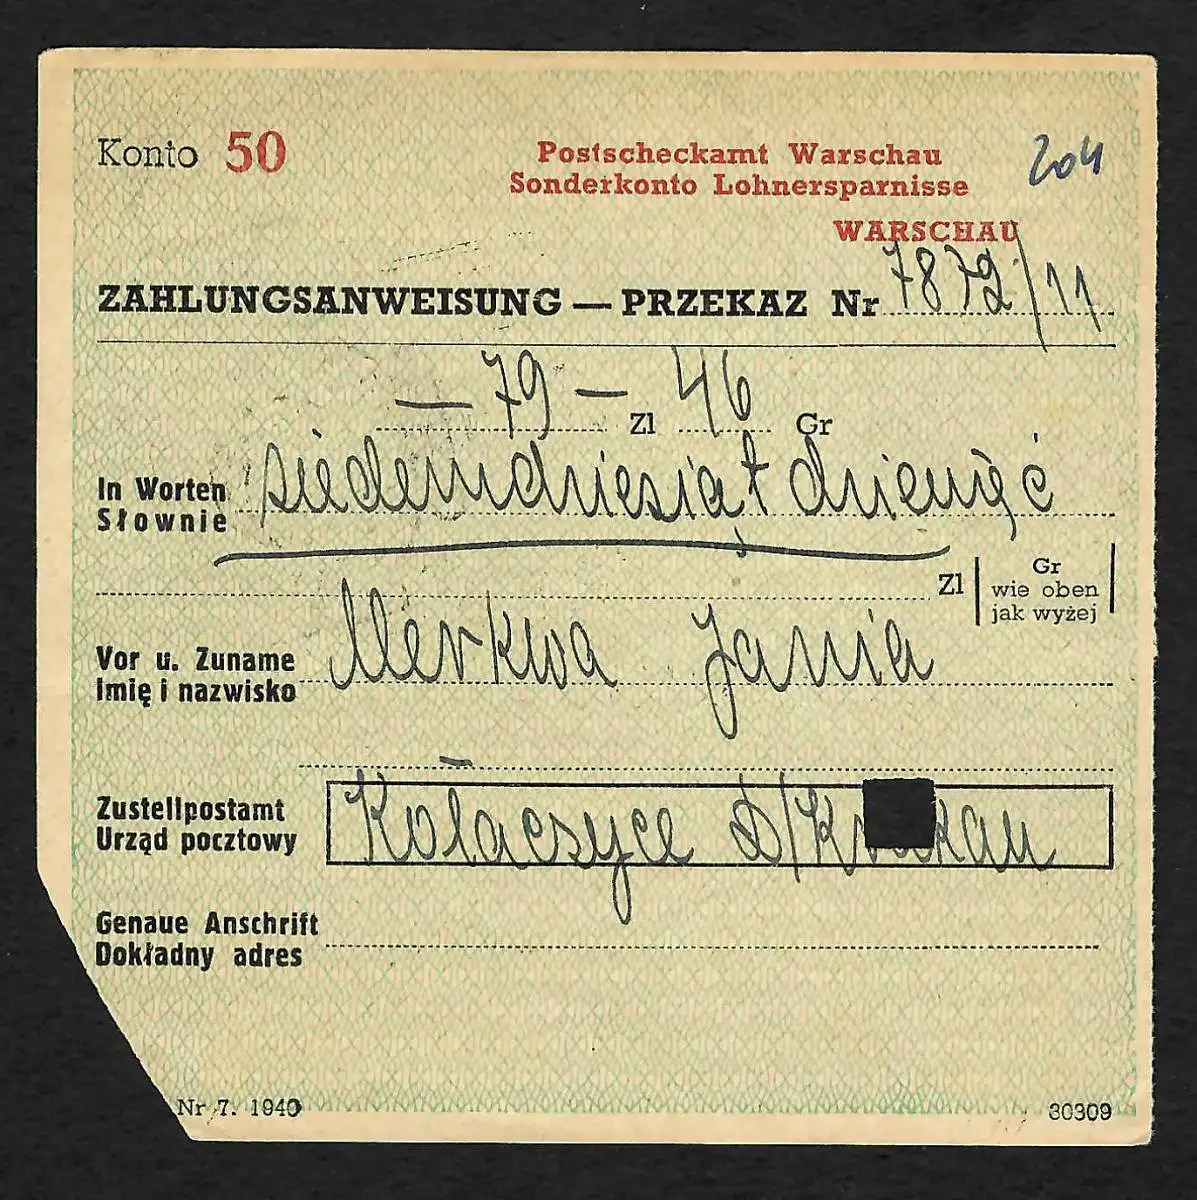 Konto 50
Postscheckamt Warschau 204
Sonderkonto Lohnersparnisse
WARSCHAU
ZAHLUNGSANWEISUNG — PRZEKAZ Nr 7872/11
— 79 — Zl 46 Gr
In Worten siedemdziesiąt dziewięć
Słownie
Zl Gr
wie oben
jak wyżej
Vor u. Zuname Merkwa Jania
Imię i nazwisko
Zustellpostamt Kołaczyce D/Krakau
Urząd pocztowy
Genaue Anschrift
Dokładny adres
Nr 7. 1940 30309